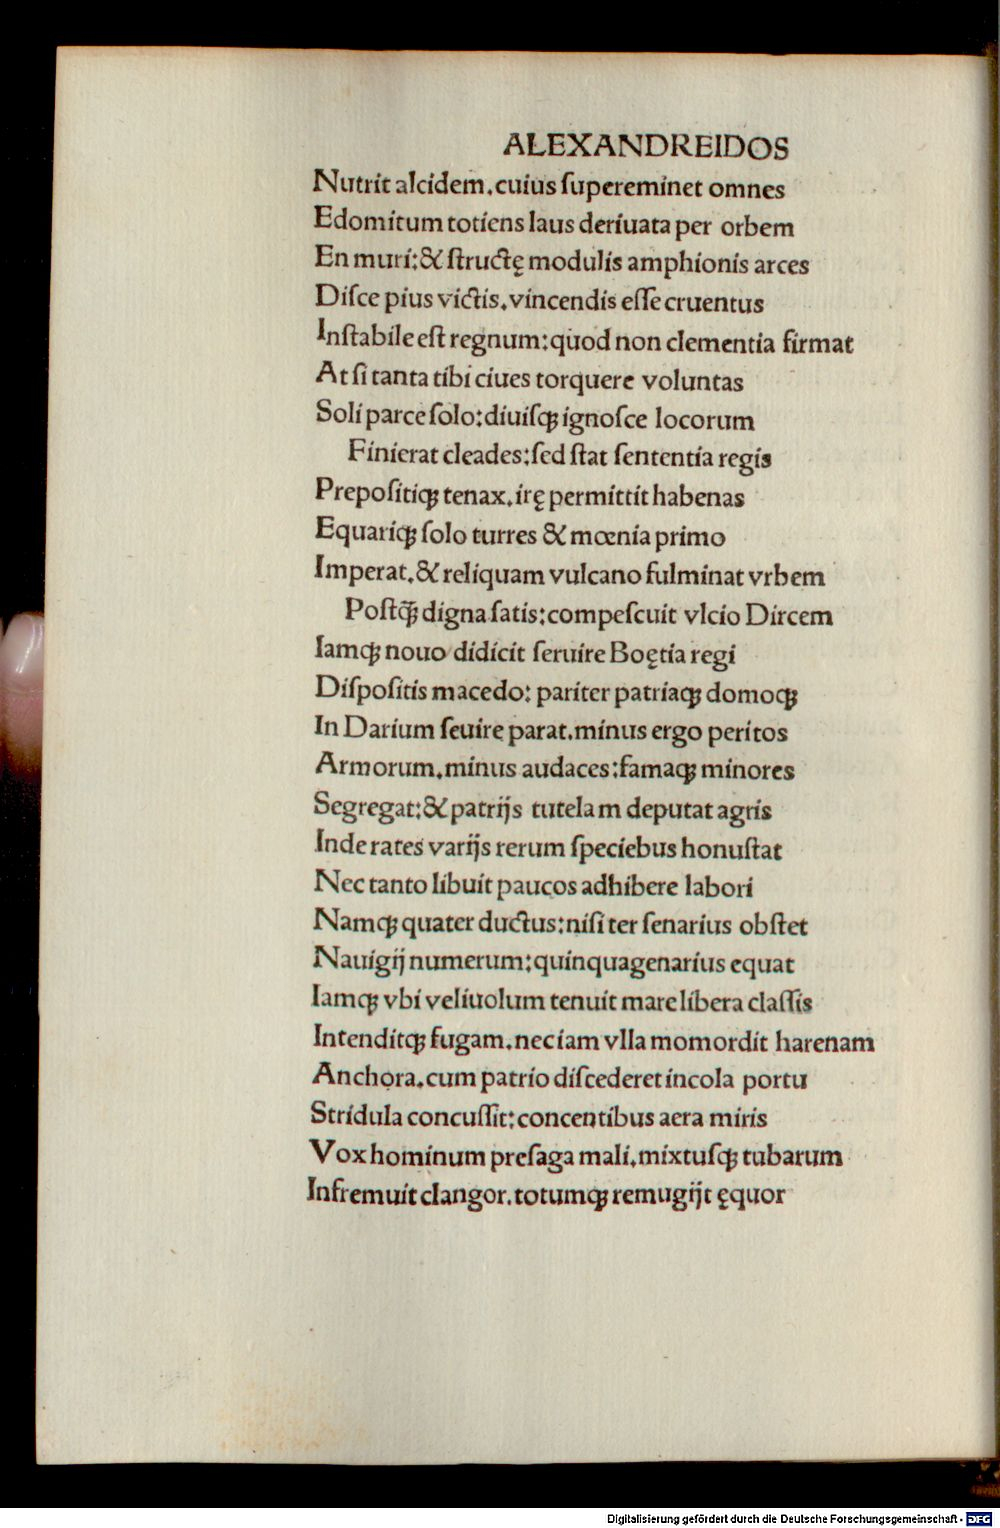 ALEXANDREIDOS
Nutrit alcidem.cuius ſupereminet omnes
Edomitum totiens laus deriuata per orbem
En muri:& ſtructę modulis amphionis arces
Diſce pius victis.vincendis eſſe cruentus
Inſtabile eſt regnum:quod non clementia firmat
At ſi tanta tibi ciues torquere voluntas
Soli parce ſolo:diuiſqꝫ ignoſce locorum
Finierat cleades:ſed ſtat ſententia regis
Prepoſitiqꝫ tenax.irę permittit habenas
Equariqꝫ ſolo turres & mœnia primo
Imperat.& reliquam vulcano fulminat vrbem
Poſtqꝫ̃ digna ſatis:compeſcuit vlcio Dircem
Iamqꝫ nouo didicit ſeruire Boętia regi
Diſpoſitis macedo: pariter patriaqꝫ domoqꝫ
In Darium ſeuire parat.minus ergo peritos
Armorum.minus audaces:famaqꝫ minores
Segregat:& patrijs tutela m deputat agris
Inde rates varijs rerum ſpeciebus honuſtat
Nec tanto libuit paucos adhibere labori
Namqꝫ quater ductus:niſi ter ſenarius obſtet
Nauigij numerum:quinquagenarius equat
Iamqꝫ vbi veliuolum tenuit mare libera claſſis
Intenditqꝫ fugam.nec iam vlla momordit harenam
Anchora.cum patrio diſcederet incola portu
Stridula concuſſit:concentibus aera miris
Vox hominum preſaga mali.mixtuſqꝫ tubarum
Infremuit clangor.totumqꝫ remugijt ęquor
Digitalisierung gefördert durch die Deutsche Forschungsgemeinschaft - DFG